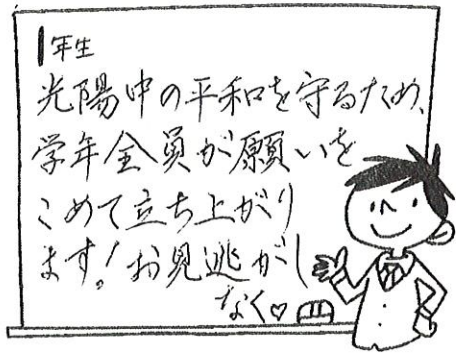 1年生
光陽中の平和を守るため、
学年全員が願いを
こめて立ち上がり
ます！お見逃がし
なく♡